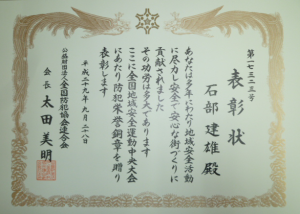 第一七五二三号
表彰状
石部建雄殿
あなたは多年にわたり地域安全活動
に尽力し安全で安心な街づくりに
貢献されました
その功労は多大であります
ここに全国地域安全運動中央大会
にあたり防犯栄誉銅章を贈り
表彰します
平成二十九年九月二十八日
公益財団法人全国防犯協会連合会
会長 太田美明